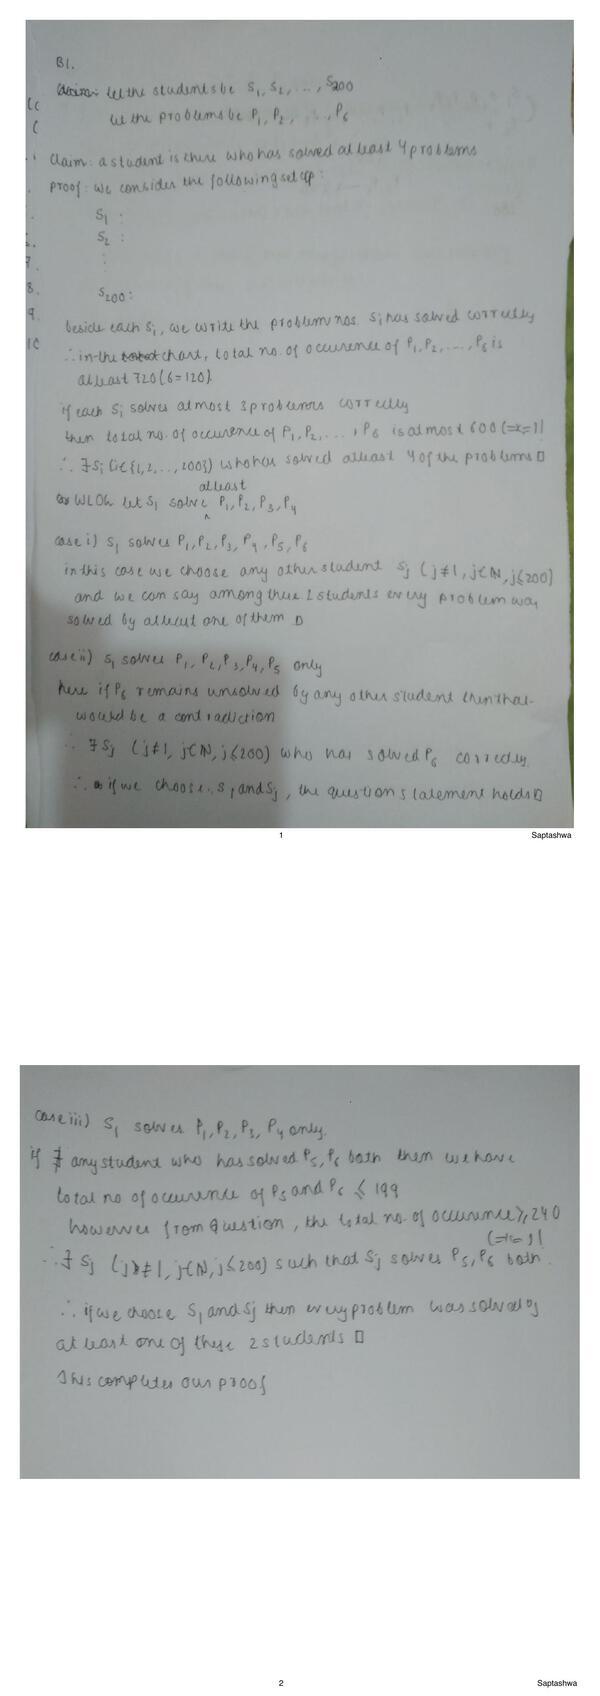 B1.
let the students be S1, S2, ..., S200
let the problems be P1, P2, ..., P6
claim: a student is there who has solved at least 4 problems
proof: we consider the following setup:
S1 :
S2 :
:
S200:
beside each Si, we write the problem nos. Si has solved correctly
∴ in the chart, total no. of occurence of P1, P2, ..., P6 is
atleast 720 (6×120)
if each Si solves atmost 3 problems correctly
then total no. of occurence of P1, P2, ..., P6 is atmost 600 (=×=)!
∴ ∃ Si (i∈{1,2,..,200}) who has solved atleast 4 of the problems □
WLOG let S1 solve atleast P1, P2, P3, P4
case i) S1 solves P1, P2, P3, P4, P5, P6
in this case we choose any other student Sj (j≠1, j∈N, j≤200)
and we can say among these 2 students every problem was
solved by atleast one of them □
case ii) S1 solves P1, P2, P3, P4, P5 only
here if P6 remains unsolved by any other student then that
would be a contradiction
∴ ∃ Sj (j≠1, j∈N, j≤200) who has solved P6 correctly.
∴ if we choose S1 and Sj, the question statement holds □
1
Saptashwa
case iii) S1 solves P1, P2, P3, P4 only.
if ∄ any student who has solved P5, P6 both then we have
total no of occurence of P5 and P6 ≤ 199
however from question, the total no. of occurence ≥ 240
(=×=)!
∴ ∃ Sj (j≠1, j∈N, j≤200) such that Sj solves P5, P6 both.
∴ if we choose S1 and Sj then every problem was solved by
at least one of these 2 students □
This completes our proof
2
Saptashwa